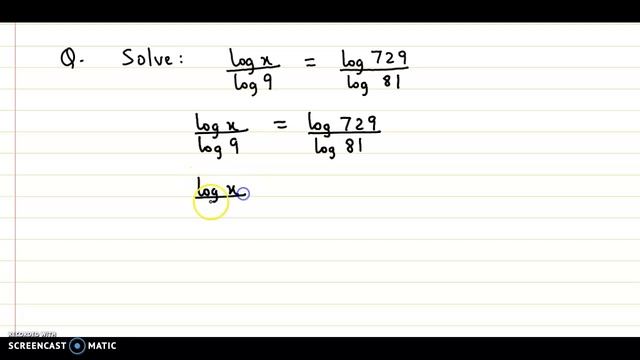 Q. Solve: log x / log 9 = log 729 / log 81
log x / log 9 = log 729 / log 81
log x
RECORDED WITH
SCREENCAST MATIC